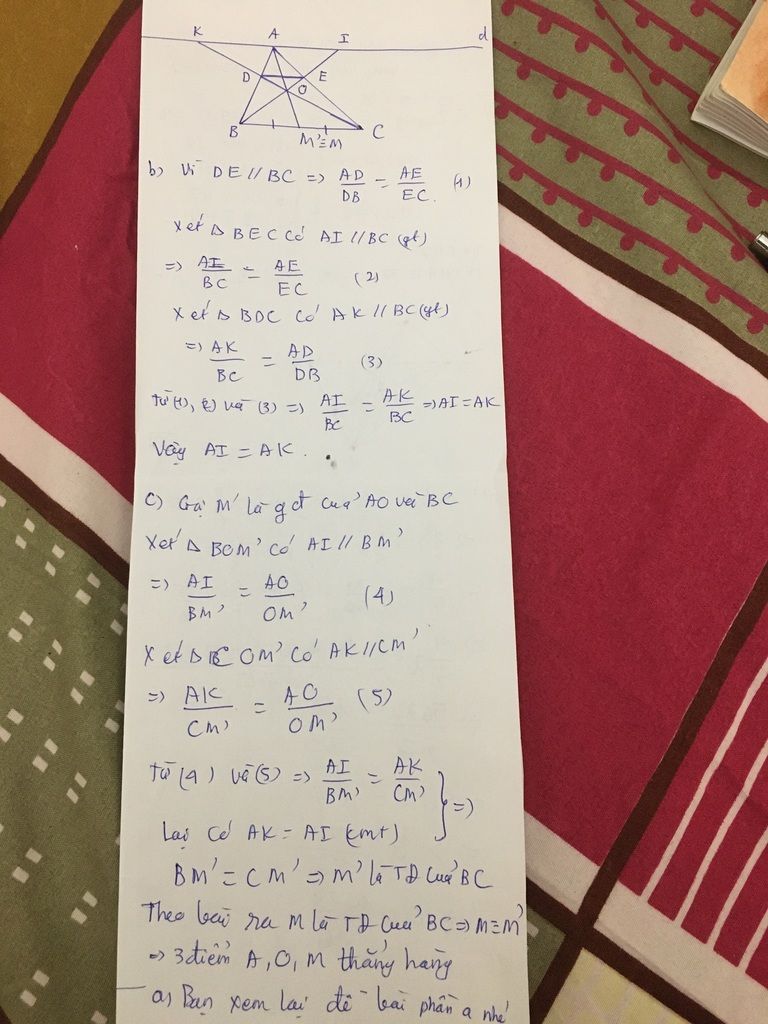 K A I d
D E
O
B M'≡M C
b) Vì DE // BC => AD/DB = AE/EC. (1)
Xét Δ BEC Có AI // BC (gt)
=> AI/BC = AE/EC (2)
Xét Δ BDC Có AK // BC (gt)
=> AK/BC = AD/DB (3)
Từ (1), (2) và (3) => AI/BC = AK/BC => AI = AK
Vậy AI = AK.
c) Gọi M' là gđ của AO và BC
Xét Δ BOM' có AI // BM'
=> AI/BM' = AO/OM' (4)
Xét Δ COM' Có AK // CM'
=> AK/CM' = AO/OM' (5)
Từ (4) và (5) => AI/BM' = AK/CM' } =>
Lại có AK = AI (cmt)
BM' = CM' => M' là TĐ của BC
Theo bài ra M là TĐ của BC => M≡M'
=> 3 điểm A, O, M thẳng hàng
a) Bạn xem lại đề bài phần a nhé